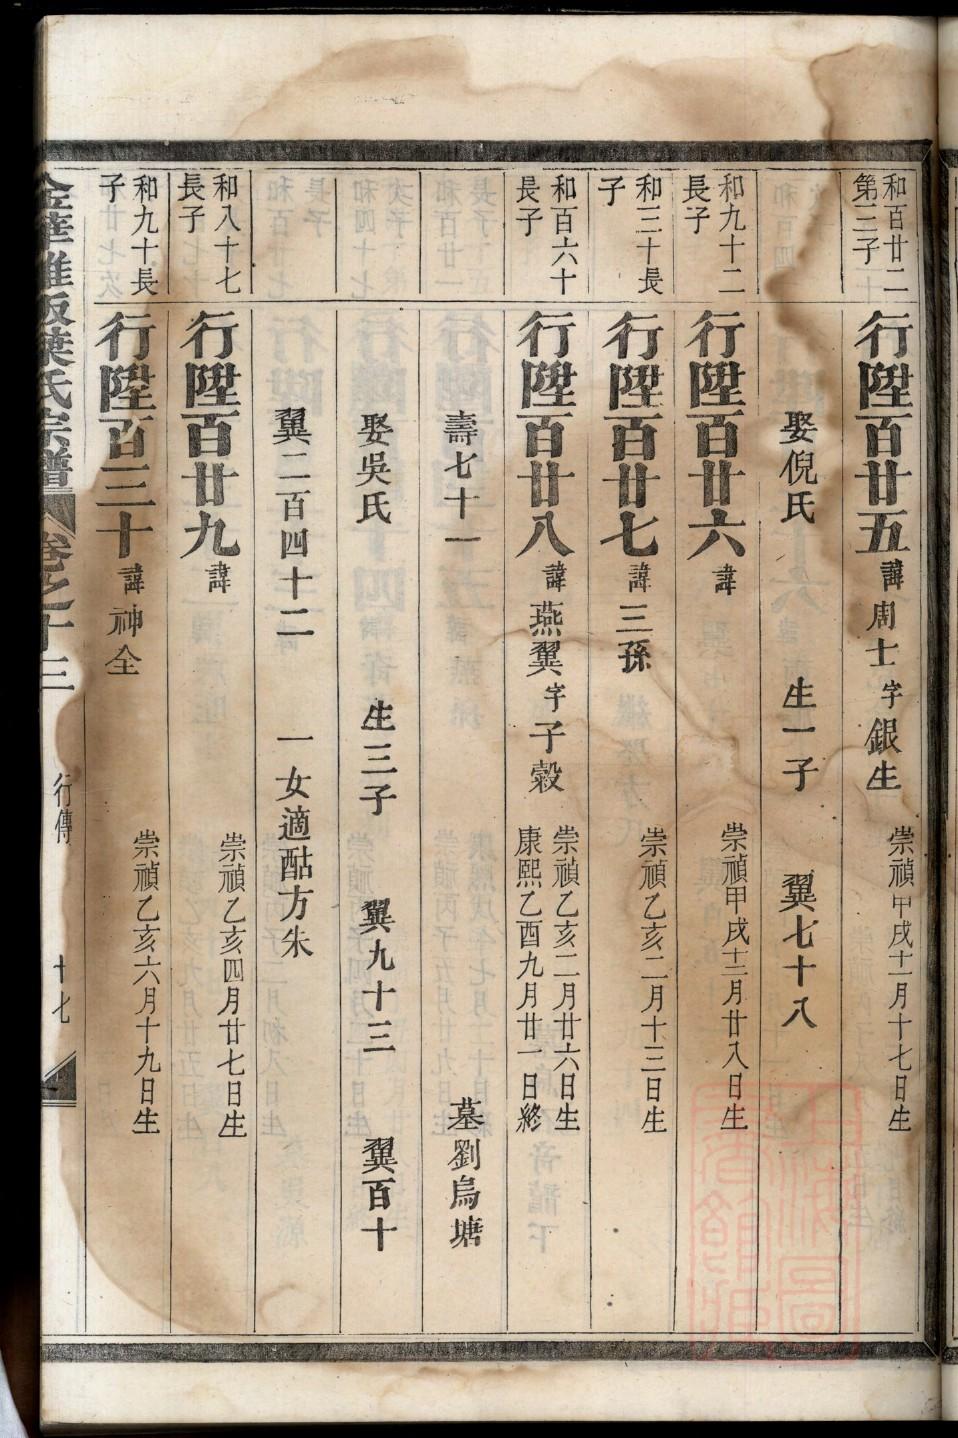 和百廿二
第三子
行陞百廿五 諱周士 字銀生
崇禎甲戌十一月十七日生
娶倪氏 生一子 翼七十八
和九十二
長子
行陞百廿六 諱
崇禎甲戌十二月廿八日生
和三十長
子
行陞百廿七 諱三孫
崇禎乙亥二月十三日生
和百六十
長子
行陞百廿八 諱燕翼 字子穀
崇禎乙亥二月廿六日生
康熙乙酉九月廿一日終
壽七十一 墓劉烏塘
娶吳氏 生三子 翼九十三 翼百十
翼二百四十二 一女適酤方朱
和八十七
長子
行陞百廿九 諱
崇禎乙亥四月廿七日生
和九十長
子
行陞百三十 諱神全
崇禎乙亥六月十九日生
葉氏宗譜 卷之十三 行傳 十七